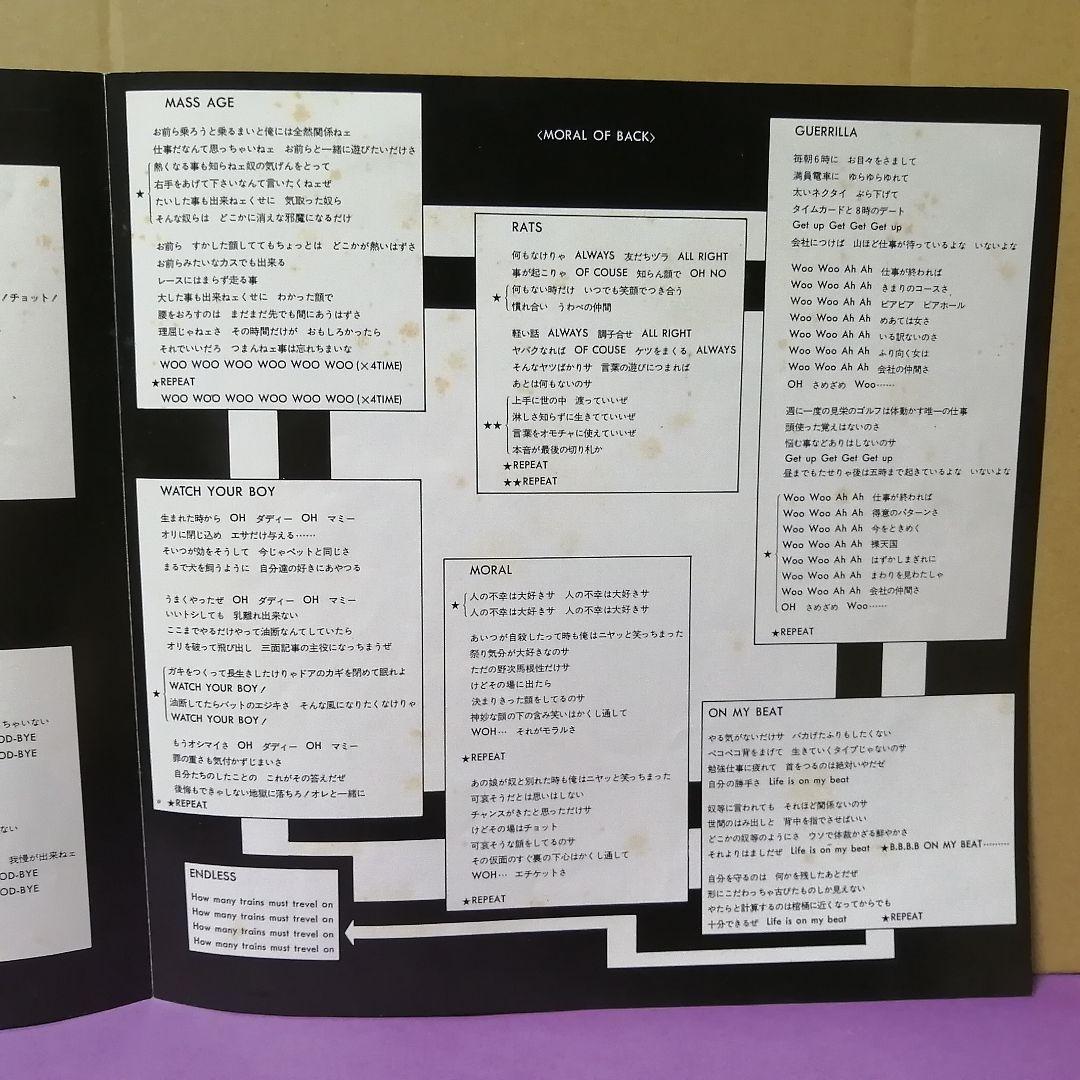 MASS AGE
お前ら乗ろうと乗るまいと俺には全然関係ねェ
仕事だなんて思っちゃいねェ お前らと一緒に遊びたいだけさ
熱くなる事も知らねェ奴の気げんをとって
★ 右手をあげて下さいなんて言いたくねェぜ
たいした事も出来ねェくせに 気取った奴ら
そんな奴らは どこかに消えな邪魔になるだけ
お前ら すかした顔しててもちょっとは どこかが熱いはずさ
お前らみたいなカスでも出来る
レースにはまらず走る事
大した事も出来ねェくせに わかった顔で
腰をおろすのは まだまだ先でも間にあうはずさ
理屈じゃねェさ その時間だけが おもしろかったら
それでいいだろ つまんねェ事は忘れちまいな
WOO WOO WOO WOO WOO WOO (×4TIME)
★REPEAT
WOO WOO WOO WOO WOO WOO (×4TIME)
WATCH YOUR BOY
生まれた時から OH ダディー OH マミー
オリに閉じ込め エサだけ与える……
そいつが効をそうして 今じゃペットと同じさ
まるで犬を飼うように 自分達の好きにあやつる
うまくやったぜ OH ダディー OH マミー
いいトシしても 乳離れ出来ない
ここまでやるだけやって油断なんてしていたら
オリを破って飛び出し 三面記事の主役になっちまうぜ
ガキをつくって長生きしたけりゃドアのカギを閉めて眠れよ
★ WATCH YOUR BOY!
油断してたらバットのエジキさ そんな風になりたくなけりゃ
WATCH YOUR BOY!
もうオシマイさ OH ダディー OH マミー
罪の重さも気付かずじまいさ
自分たちのしたことの これがその答えだぜ
後悔もできゃしない地獄に落ちろ!オレと一緒に
★REPEAT
ENDLESS
How many trains must trevel on
How many trains must trevel on
How many trains must trevel on
How many trains must trevel on
〈MORAL OF BACK〉
RATS
何もなけりゃ ALWAYS 友だちヅラ ALL RIGHT
事が起こりゃ OF COUSE 知らん顔で OH NO
★ 何もない時だけ いつでも笑顔でつき合う
慣れ合い うわべの仲間
軽い話 ALWAYS 調子合せ ALL RIGHT
ヤバクなれば OF COUSE ケツをまくる ALWAYS
そんなヤツばかりサ 言葉の遊びにつまれば
あとは何もないのサ
上手に世の中 渡っていいぜ
淋しさ知らずに生きてていいぜ
★★ 言葉をオモチャに使えていいぜ
本音が最後の切り札か
★REPEAT
★★REPEAT
MORAL
★ 人の不幸は大好きサ 人の不幸は大好きサ
人の不幸は大好きサ 人の不幸は大好きサ
あいつが自殺したって時も俺はニヤッと笑っちまった
祭り気分が大好きなのサ
ただの野次馬根性だけサ
けどその場に出たら
決まりきった顔をしてるのサ
神妙な顔の下の含み笑いはかくし通して
WOH… それがモラルさ
★REPEAT
あの娘が奴と別れた時も俺はニヤッと笑っちまった
可哀そうだとは思いはしない
チャンスがきたと思っただけサ
けどその場はチョット
可哀そうな顔をしてるのサ
その仮面のすぐ裏の下心はかくし通して
WOH… エチケットさ
★REPEAT
GUERRILLA
毎朝6時に お目々をさまして
満員電車に ゆらゆらゆれて
太いネクタイ ぶら下げて
タイムカードと8時のデート
Get up Get Get Get up
会社につけば 山ほど仕事が待っているよな いないよな
Woo Woo Ah Ah 仕事が終われば
Woo Woo Ah Ah きまりのコースさ
Woo Woo Ah Ah ビアビア ビアホール
Woo Woo Ah Ah めあては女さ
Woo Woo Ah Ah いる訳ないのさ
Woo Woo Ah Ah ふり向く女は
Woo Woo Ah Ah 会社の仲間さ
OH さめざめ Woo……
週に一度の見栄のゴルフは体動かす唯一の仕事
頭使った覚えはないのさ
悩む事などありはしないのサ
Get up Get Get Get up
昼までもたせりゃ後は五時まで起きているよな いないよな
Woo Woo Ah Ah 仕事が終われば
Woo Woo Ah Ah 得意のパターンさ
Woo Woo Ah Ah 今をときめく
★ Woo Woo Ah Ah 裸天国
Woo Woo Ah Ah はずかしまぎれに
Woo Woo Ah Ah まわりを見わたしゃ
Woo Woo Ah Ah 会社の仲間さ
OH さめざめ Woo……
★REPEAT
ON MY BEAT
やる気がないだけサ バカげたふりもしたくない
ペコペコ背をまげて 生きていくタイプじゃないのサ
勉強仕事に疲れて 首をつるのは絶対いやだぜ
自分の勝手さ Life is on my beat
奴等に言われても それほど関係ないのサ
世間のはみ出しと 背中を指でさせばいい
どこかの奴等のようにさ ウソで体裁かざる鮮やかさ
それよりはましだぜ Life is on my beat ★B.B.B.B ON MY BEAT………
自分を守るのは 何かを残したあとだぜ
形にこだわっちゃ古びたものしか見えない
やたらと計算するのは棺桶に近くなってからでも
十分できるぜ Life is on my beat ★REPEAT
!チョット!
ちゃいない
OD-BYE
OD-BYE
ない
我慢が出来ねェ
OD-BYE
OD-BYE